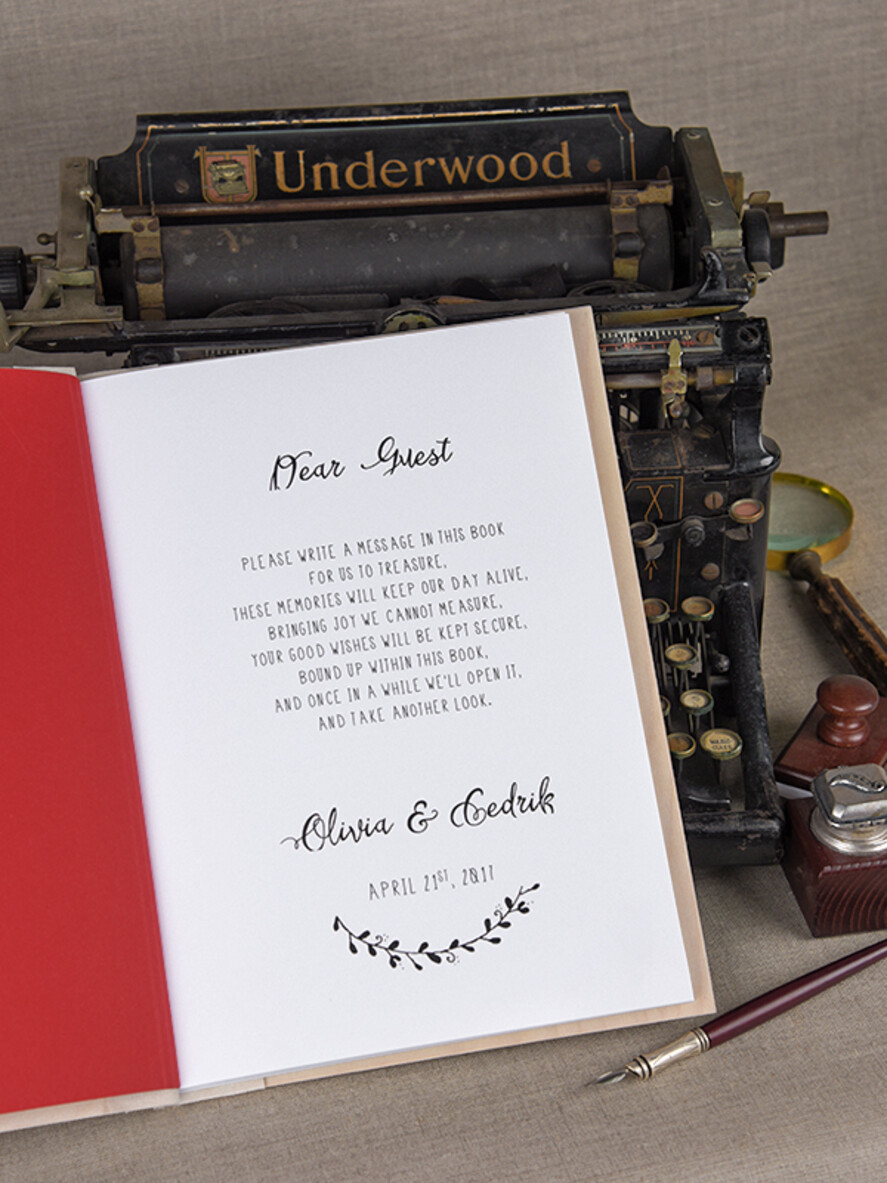 Underwood
Dear Guest
PLEASE WRITE A MESSAGE IN THIS BOOK
FOR US TO TREASURE,
THESE MEMORIES WILL KEEP OUR DAY ALIVE,
BRINGING JOY WE CANNOT MEASURE,
YOUR GOOD WISHES WILL BE KEPT SECURE,
BOUND UP WITHIN THIS BOOK,
AND ONCE IN A WHILE WE'LL OPEN IT,
AND TAKE ANOTHER LOOK.
Olivia & Cedrik
APRIL 21ST, 2017